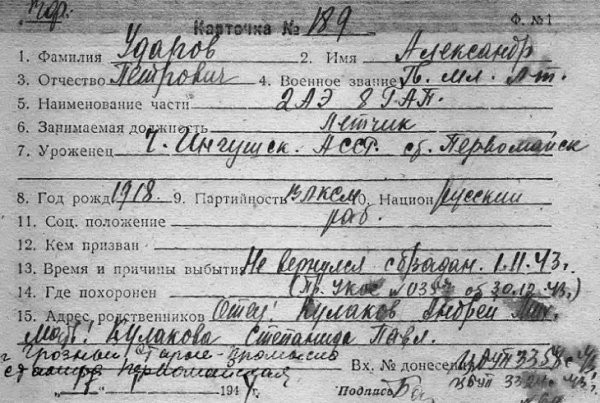 Карточка № 189
Ф. №1
1. Фамилия Ударов 2. Имя Александр
3. Отчество Петрович 4. Военное звание Гв. мл. л-т.
5. Наименование части 2АЭ 8 ГАП.
6. Занимаемая должность Летчик
7. Уроженец Ч. Ингушск. АССР. ст. Первомайск
8. Год рожд 1918. 9. Партийность ВЛКСМ 0. Национ Русский
11. Соц. положение раб.
12. Кем призван
13. Время и причины выбытия Не вернулся с б/задан. 1.11.43г.
14. Где похоронен (Пр. 30.12.43.)
15. Адрес родственников Отец! Кулаков Андрей
Мать! Кулакова Степанида Павл.
г Грозный! Старые-промысла
станица Первомайская Вх. № донесен
194 Подпись